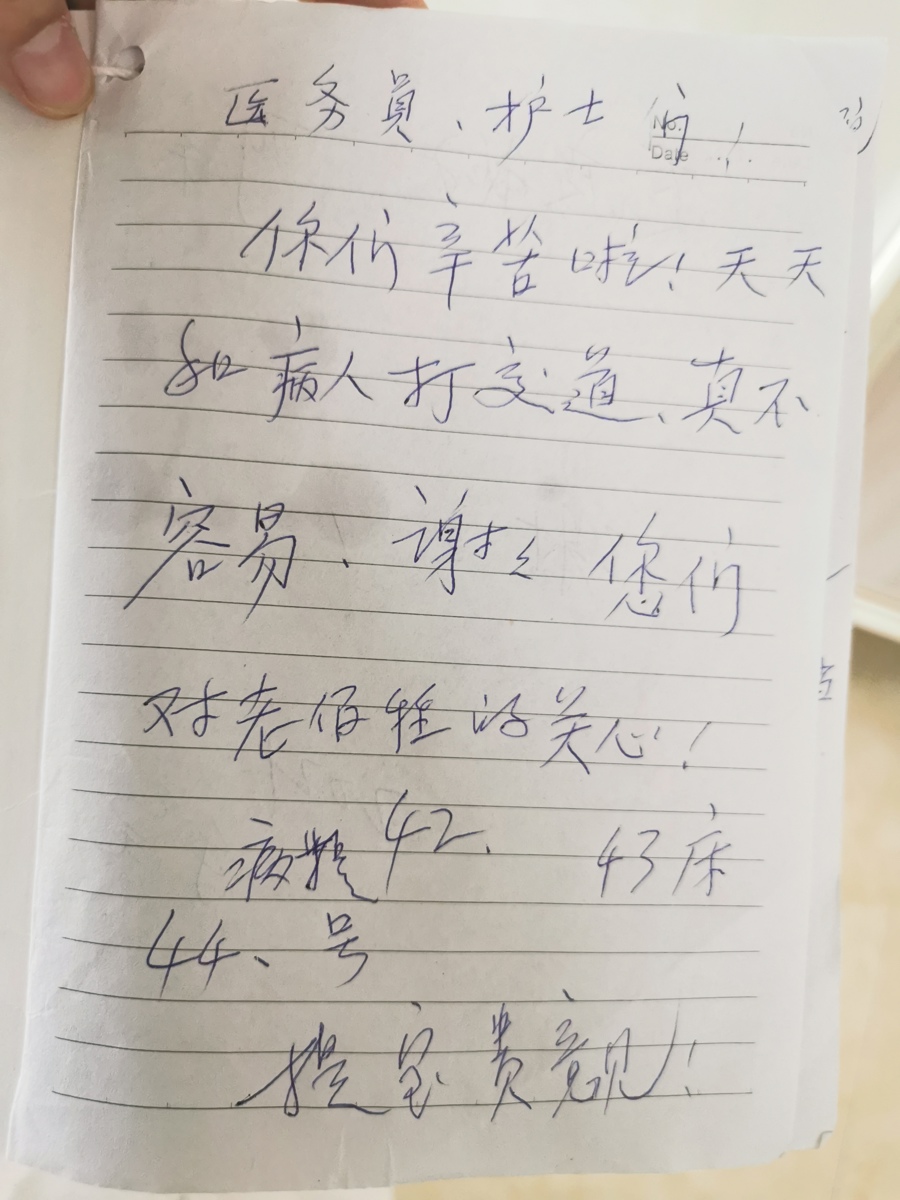 医务員、护士们!
No.
Date
你们辛苦啦!天天
和病人打交道、真不
容易、谢谢您们
对老佰牲的关心!
病 42、 43床
44、号
提宝贵意见!